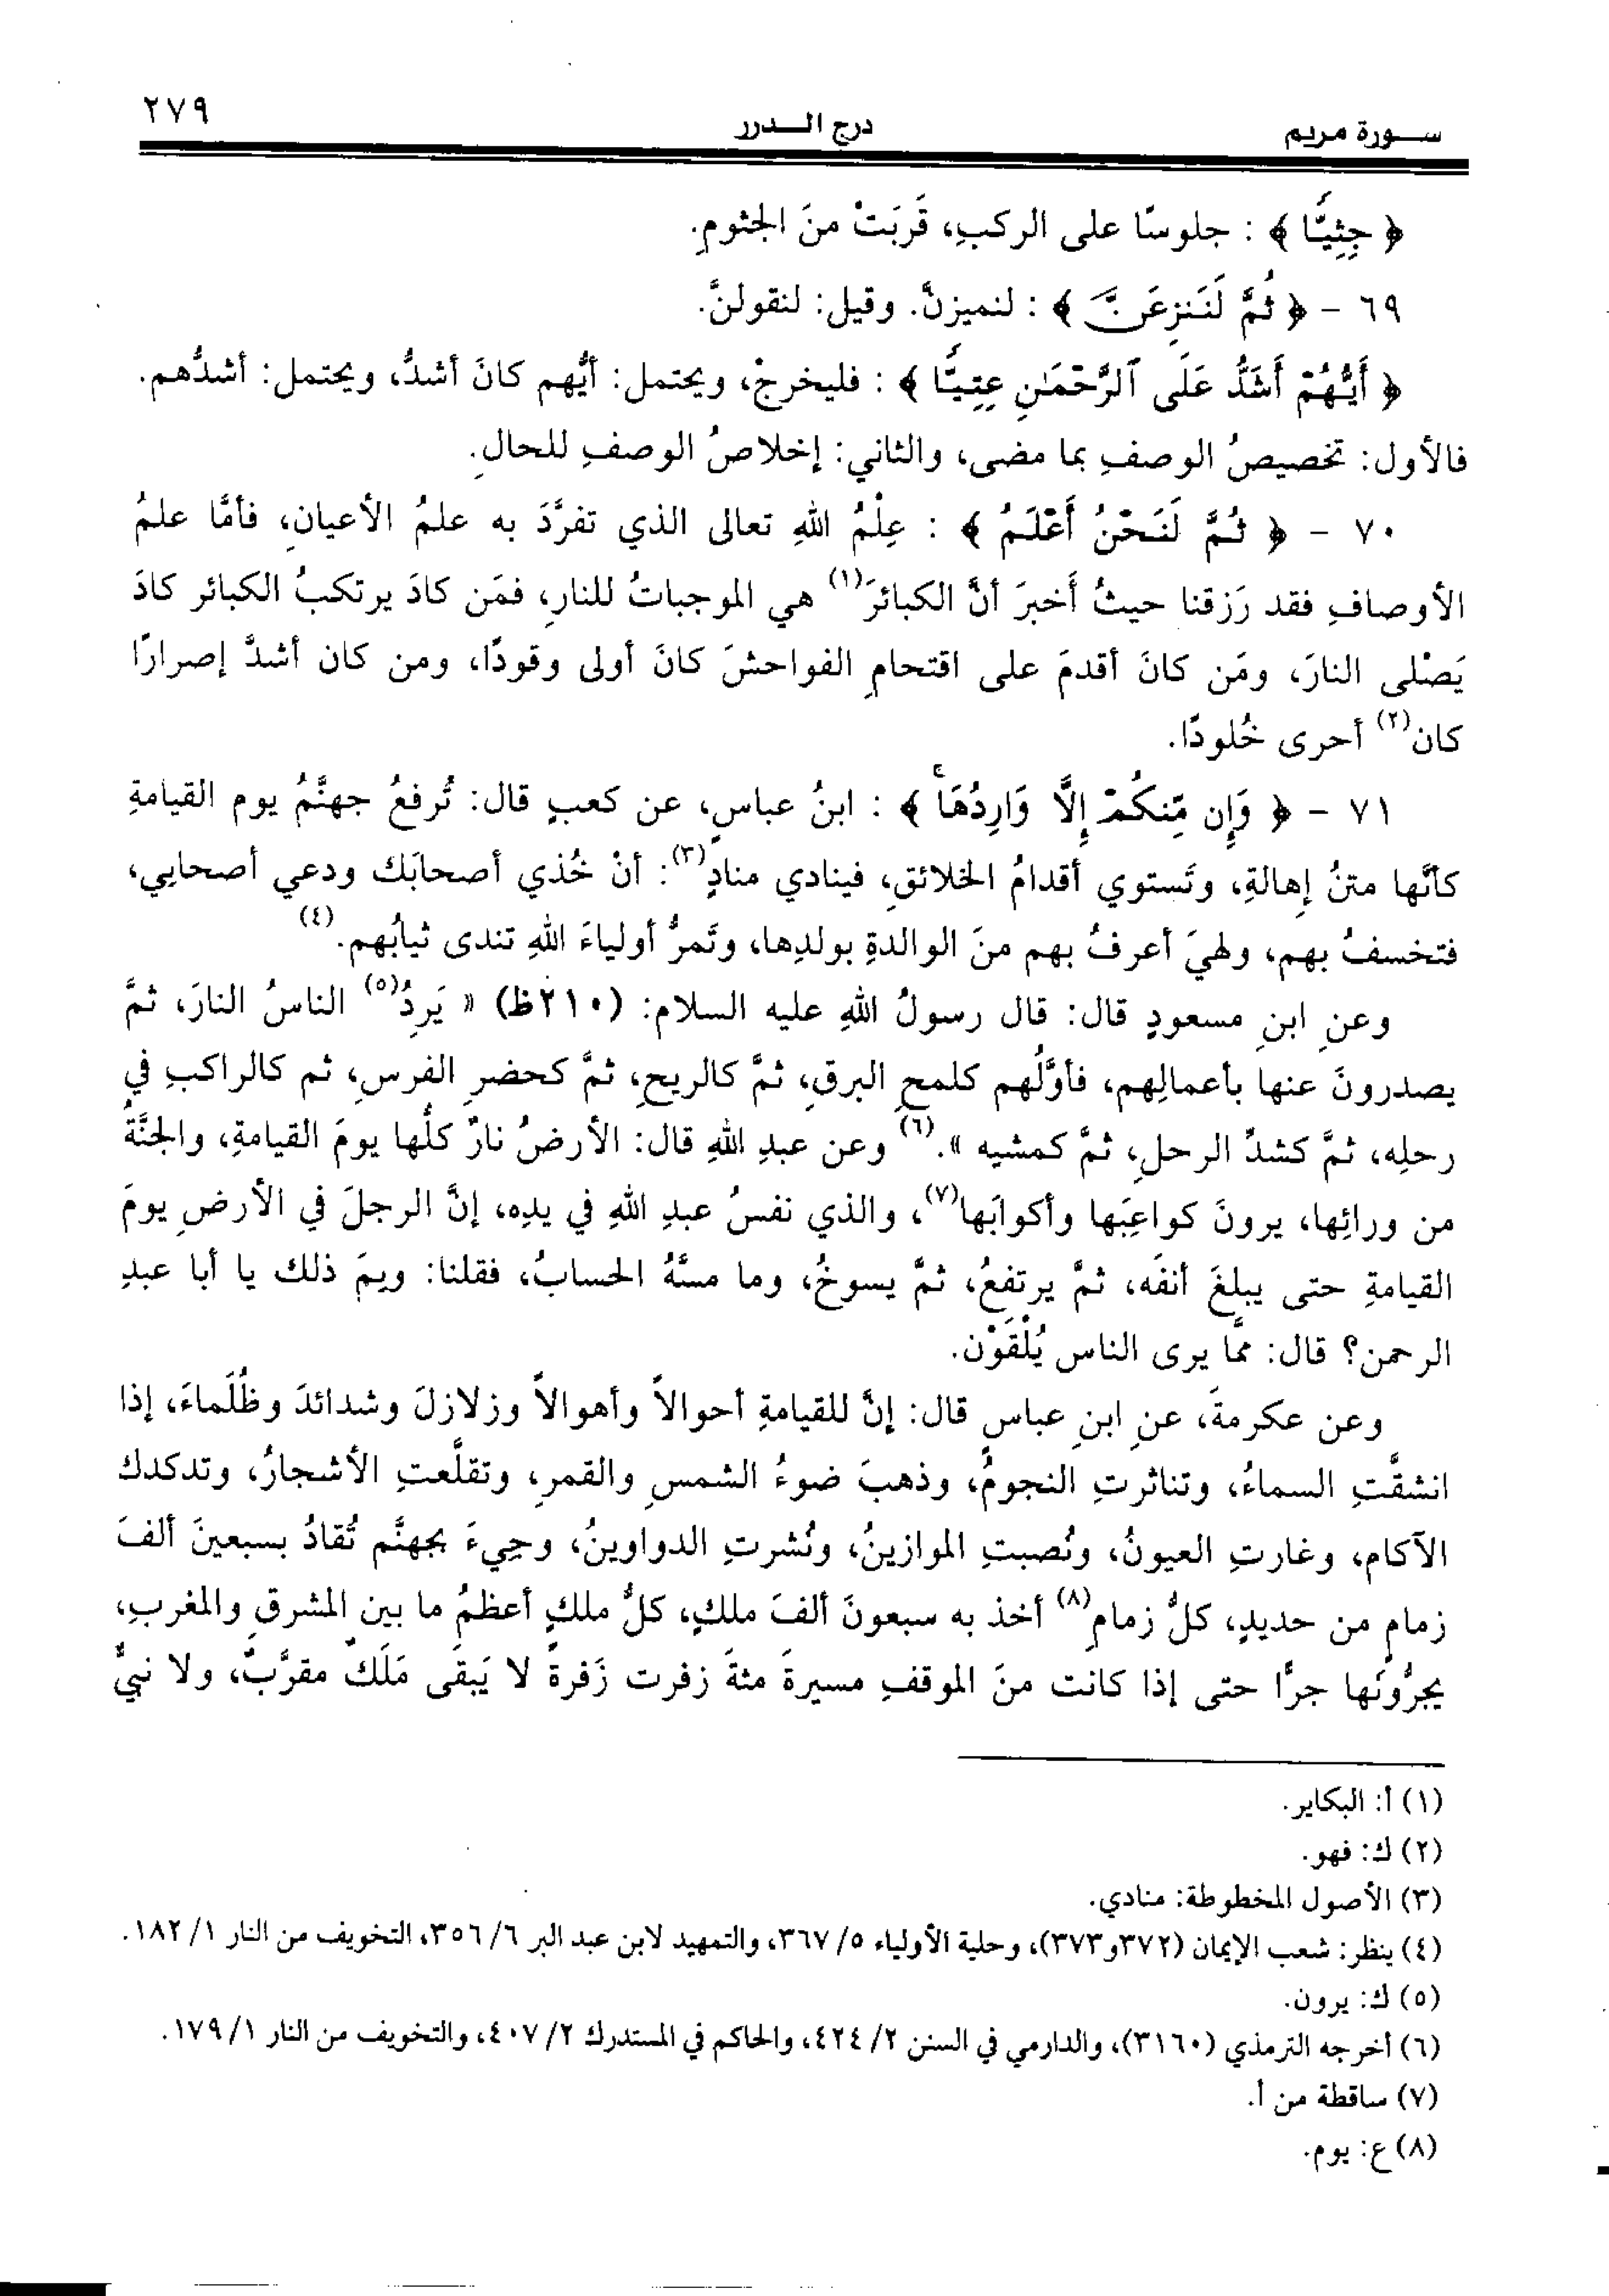 سورة مريم درج الدرر ٢٧٩
﴿ جِثِيًّا ﴾ : جلوسًا على الركبِ، قَرُبَتْ منَ الجثومِ.
٦٩ - ﴿ ثُمَّ لَنَنزِعَنَّ ﴾ : لنميزنَّ. وقيل: لنقولنَّ.
﴿ أَيُّهُمْ أَشَدُّ عَلَى ٱلرَّحْمَـٰنِ عِتِيًّا ﴾ : فليخرجْ، ويحتمل: أيُّهم كانَ أشدُّ، ويحتمل: أشدُّهم.
فالأول: تخصيصُ الوصفِ بما مضى، والثاني: إخلاصُ الوصفِ للحالِ.
٧٠ - ﴿ ثُمَّ لَنَحْنُ أَعْلَمُ ﴾ : عِلْمُ اللهِ تعالى الذي تفرَّدَ به علمُ الأعيانِ، فأمَّا علمُ
الأوصافِ فقد رَزقنا حيثُ أَخبرَ أنَّ الكبائرَ(١) هي الموجباتُ للنارِ، فمَن كادَ يرتكبُ الكبائر كادَ
يَصْلى النارَ، ومَن كانَ أقدمَ على اقتحامِ الفواحشَ كانَ أولى وقودًا، ومن كان أشدَّ إصرارًا
كان(٢) أحرى خُلودًا.
٧١ - ﴿ وَإِن مِّنكُمْ إِلَّا وَارِدُهَا ۚ ﴾ : ابنُ عباسٍ، عن كعبٍ قال: تُرفعُ جهنَّمُ يوم القيامةِ
كأنَّها متنُ إهالةِ، وتَستوي أقدامُ الخلائقِ، فينادي منادٍ(٣): أنْ خُذي أصحابَك ودعي أصحابي،
فتخسفُ بهم، ولهيَ أعرفُ بهم منَ الوالدةِ بولدِها، وتَمرُّ أولياءَ اللهِ تندى ثيابُهم.(٤)
وعنِ ابنِ مسعودٍ قال: قال رسولُ اللهِ عليه السلام: (٢١٠ظ) « يَرِدُ(٥) الناسُ النارَ، ثمَّ
يصدرونَ عنها بأعمالِهم، فأوَّلُهم كلمحِ البرقِ، ثمَّ كالريحِ، ثمَّ كحضرِ الفرسِ، ثم كالراكبِ في
رحلِه، ثمَّ كشدِّ الرحلِ، ثمَّ كمشيه ».(٦) وعن عبدِ اللهِ قال: الأرضُ نارٌ كلُّها يومَ القيامةِ، والجنَّةُ
من ورائِها، يرونَ كواعِبَها وأكوابَها(٧)، والذي نفسُ عبدِ اللهِ في يدِه، إنَّ الرجلَ في الأرضِ يومَ
القيامةِ حتى يبلغَ أنفَه، ثمَّ يرتفعُ، ثمَّ يسوخُ، وما مسَّهُ الحسابُ، فقلنا: وبِمَ ذلك يا أبا عبدِ
الرحمن؟ قال: ممَّا يرى الناس يُلْقَوْن.
وعن عكرمةَ، عنِ ابنِ عباسٍ قال: إنَّ للقيامةِ أحوالاً وأهوالاً وزلازلَ وشدائدَ وظُلَماءَ، إذا
انشقَّتِ السماءُ، وتناثرتِ النجومُ، وذهبَ ضوءُ الشمسِ والقمرِ، وتقلَّعتِ الأشجارُ، وتدكدك
الآكام، وغارتِ العيونُ، ونُصبتِ الموازينُ، ونُشرتِ الدواوينُ، وجِيءَ بجهنَّم تُقادُ بسبعينَ ألفَ
زمامٍ من حديدٍ، كلُّ زمامِ(٨) أخذ به سبعونَ ألفَ ملكٍ، كلُّ ملكٍ أعظمُ ما بين المشرقِ والمغربِ،
يجرُّونَها جرًّا حتى إذا كانت منَ الموقفِ مسيرةَ مئةَ زفرت زَفرةً لا يَبقَى مَلَكٌ مقرَّبٌ، ولا نبيٌّ
(١) أ: البكاير.
(٢) ك: فهو.
(٣) الأصول المخطوطة: منادي.
(٤) ينظر: شعب الإيمان (٣٧٢و٣٧٣)، وحلية الأولياء ٥/ ٣٦٧، والتمهيد لابن عبد البر ٦/ ٣٥٦، التخويف من النار ١/ ١٨٢.
(٥) ك: يرون.
(٦) أخرجه الترمذي (٣١٦٠)، والدارمي في السنن ٢/ ٤٢٤، والحاكم في المستدرك ٢/ ٤٠٧، والتخويف من النار ١/ ١٧٩.
(٧) ساقطة من أ.
(٨) ع: يوم.